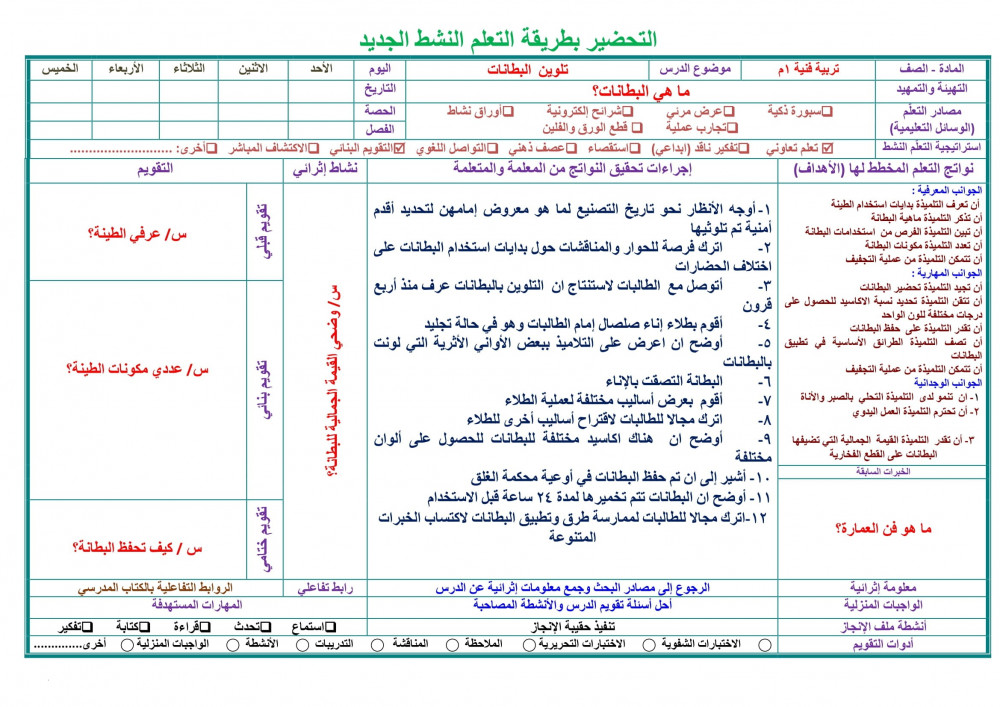 التحضير بطريقة التعلم النشط الجديد
المادة - الصف
تربية فنية ١م
موضوع الدرس
تلوين البطانات
اليوم
الأحد
الاثنين
الثلاثاء
الأربعاء
الخميس
التهيئة والتمهيد
ما هي البطانات؟
التاريخ
مصادر التعلم
(الوسائل التعليمية)
❑سبورة ذكية ❑عرض مرئي ❑شرائح إلكترونية ❑أوراق نشاط
❑تجارب عملية ❑ قطع الورق والفلين
الحصة
الفصل
استراتيجية التعلم النشط
☑ تعلم تعاوني ❑تفكير ناقد (ابداعي) ❑استقصاء ❑عصف ذهني ❑التواصل اللغوي ☑التقويم البنائي ❑الاكتشاف المباشر ❑أخرى: ..........................
نواتج التعلم المخطط لها (الأهداف)
إجراءات تحقيق النواتج من المعلمة والمتعلمة
نشاط إثرائي
التقويم
الجوانب المعرفية :
أن تعرف التلميذة بدايات استخدام الطينة
أن تذكر التلميذة ماهية البطانة
أن تبين التلميذة الغرض من استخدامات البطانة
أن تعدد التلميذة مكونات البطانة
أن تتمكن التلميذة من عملية التجفيف
الجوانب المهارية :
أن تجيد التلميذة تحضير البطانات
أن تتقن التلميذة تحديد نسبة الاكاسيد للحصول على
درجات مختلفة للون الواحد
أن تقدر التلميذة على حفظ البطانات
أن تصف التلميذة الطرائق الأساسية في تطبيق
البطانات
أن تتمكن التلميذة من عملية التجفيف
الجوانب الوجدانية
١- ان تنمو لدى التلميذة التحلي بالصبر والأناة
٢- أن تحترم التلميذة العمل اليدوي
٣- أن تقدر التلميذة القيمة الجمالية التي تضيفها
البطانات على القطع الفخارية
الخبرات السابقة
ما هو فن العمارة؟
١- أوجه الأنظار نحو تاريخ التصنيع لما هو معروض إمامهن لتحديد أقدم
أمنية تم تلوثيها
٢- اترك فرصة للحوار والمناقشات حول بدايات استخدام البطانات على
اختلاف الحضارات
٣- أتوصل مع الطالبات لاستنتاج ان التلوين بالبطانات عرف منذ أربع
قرون
٤- أقوم بطلاء إناء صلصال إمام الطالبات وهو في حالة تجليد
٥- أوضح ان اعرض على التلاميذ ببعض الأواني الأثرية التي لونت
بالبطانات
٦- البطانة التصقت بالإناء
٧- أقوم بعرض أساليب مختلفة لعملية الطلاء
٨- اترك مجالا للطالبات لاقتراح أساليب أخرى للطلاء
٩- أوضح ان هناك اكاسيد مختلفة للبطانات للحصول على ألوان
مختلفة
١٠- أشير إلى ان تم حفظ البطانات في أوعية محكمة الغلق
١١- أوضح ان البطانات تتم تخميرها لمدة ٢٤ ساعة قبل الاستخدام
١٢-اترك مجالا للطالبات لممارسة طرق وتطبيق البطانات لاكتساب الخبرات
المتنوعة
س/ وضحي القيمة الجمالية للبطانة؟
تقويم قبلي
س/ عرفي الطينة؟
تقويم بنائي
س/ عددي مكونات الطينة؟
تقويم ختامي
س / كيف تحفظ البطانة؟
معلومة إثرائية
الرجوع إلى مصادر البحث وجمع معلومات إثرائية عن الدرس
رابط تفاعلي
الروابط التفاعلية بالكتاب المدرسي
الواجبات المنزلية
أحل أسئلة تقويم الدرس والأنشطة المصاحبة
المهارات المستهدفة
أنشطة ملف الإنجاز
تنفيذ حقيبة الإنجاز
❑استماع ❑تحدث ❑قراءة ❑كتابة ❑تفكير
أدوات التقويم
◯ الاختبارات الشفوية ◯ الاختبارات التحريرية ◯ الملاحظة ◯ المناقشة ◯ التدريبات ◯ الأنشطة ◯ الواجبات المنزلية ◯ أخرى..............